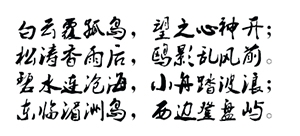 白云覆孤岛，望之心神开；
松涛香雨后，鸥影乱风前。
碧水连沧海，小舟踏波浪；
东临湄洲岛，西边登盘屿。